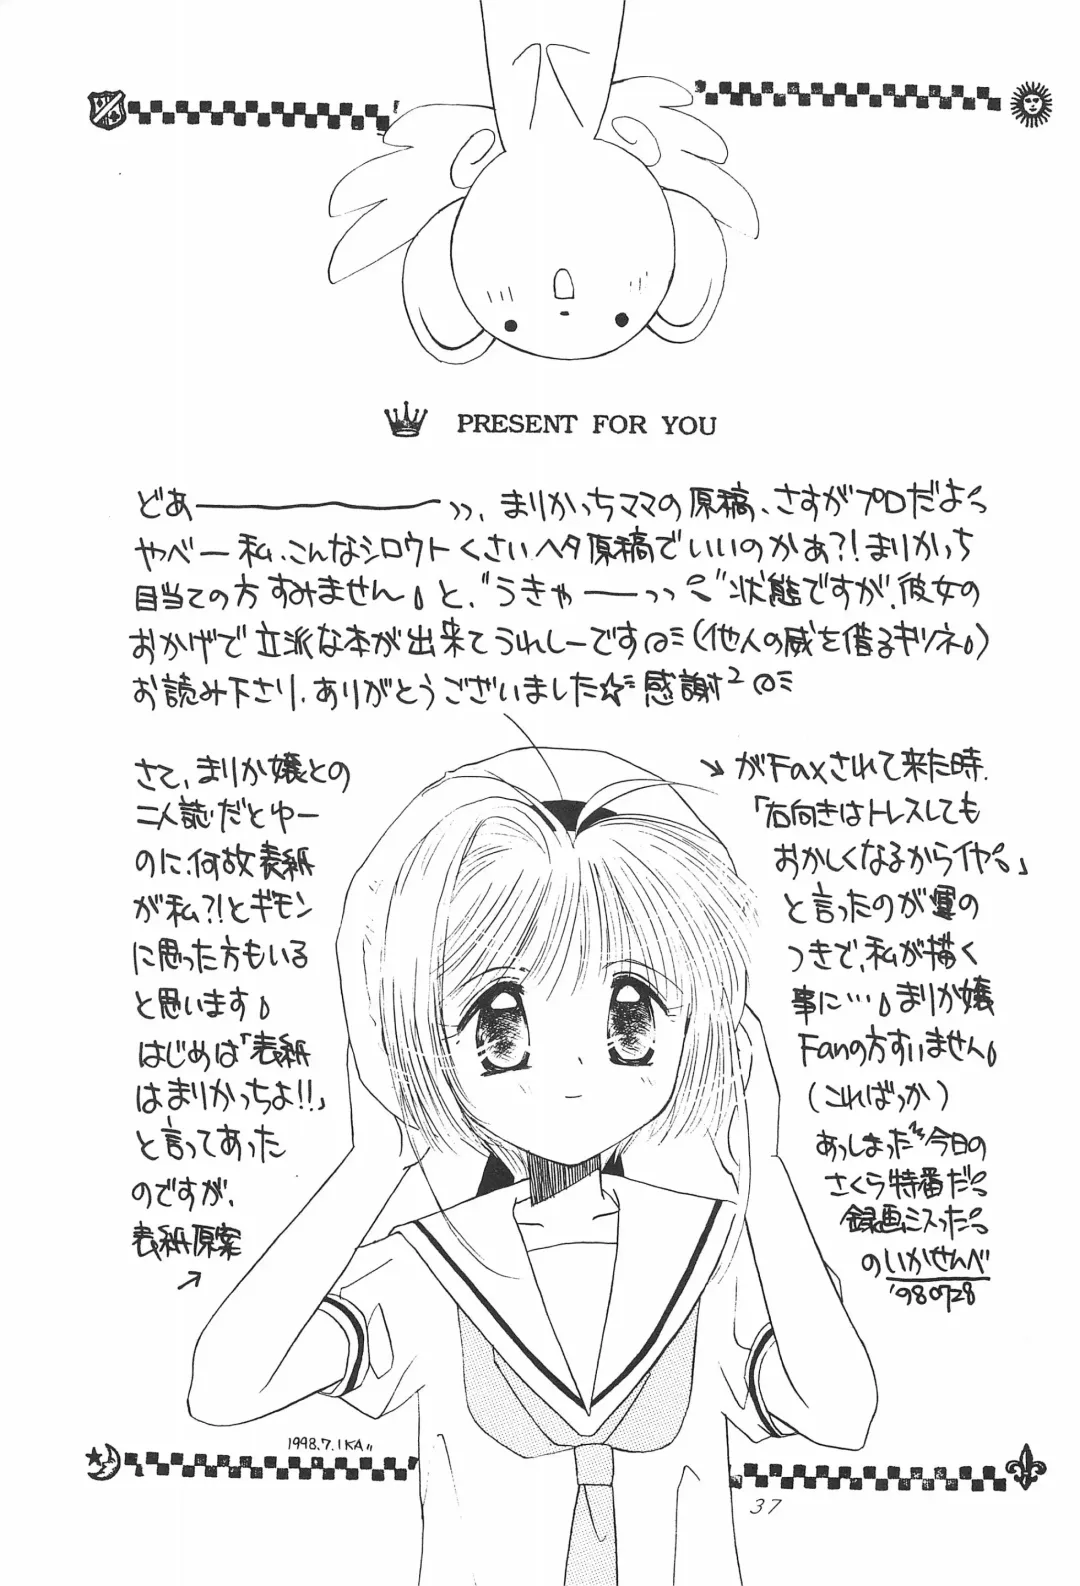 PRESENT FOR YOU
どあーーーッッ、まりかっちママの原稿、さすがプロだよっ
やべー私、こんなシロウトくさいヘタ原稿でいいのかぁ?!まりかっち
目当ての方すみません。と、"うきゃーーッッ"状態ですが、彼女の
おかげで立派な本が出来てうれしーです(他人の威を借るキツネ。)
お読み下さり、ありがとうございました☆感謝²
さて、まりか嬢との
二人誌だとゆー
のに、何故表紙
が私?!とギモン
に思った方もいる
と思います。
はじめは「表紙
はまりかっちよ!!」
と言ってあった
のですが、
表紙原案
↗
↘がFaxされて来た時、
「右向きはトレスしても
おかしくなるからイヤ。」
と言ったのが運の
つきで、私が描く
事に…。まりか嬢
Fanの方すいません。
(こればっか)
あっしまった今日の
さくら特番だっ
録画ミスったっ
のいかせんべ
'980728
1998.7.IKA〃
37